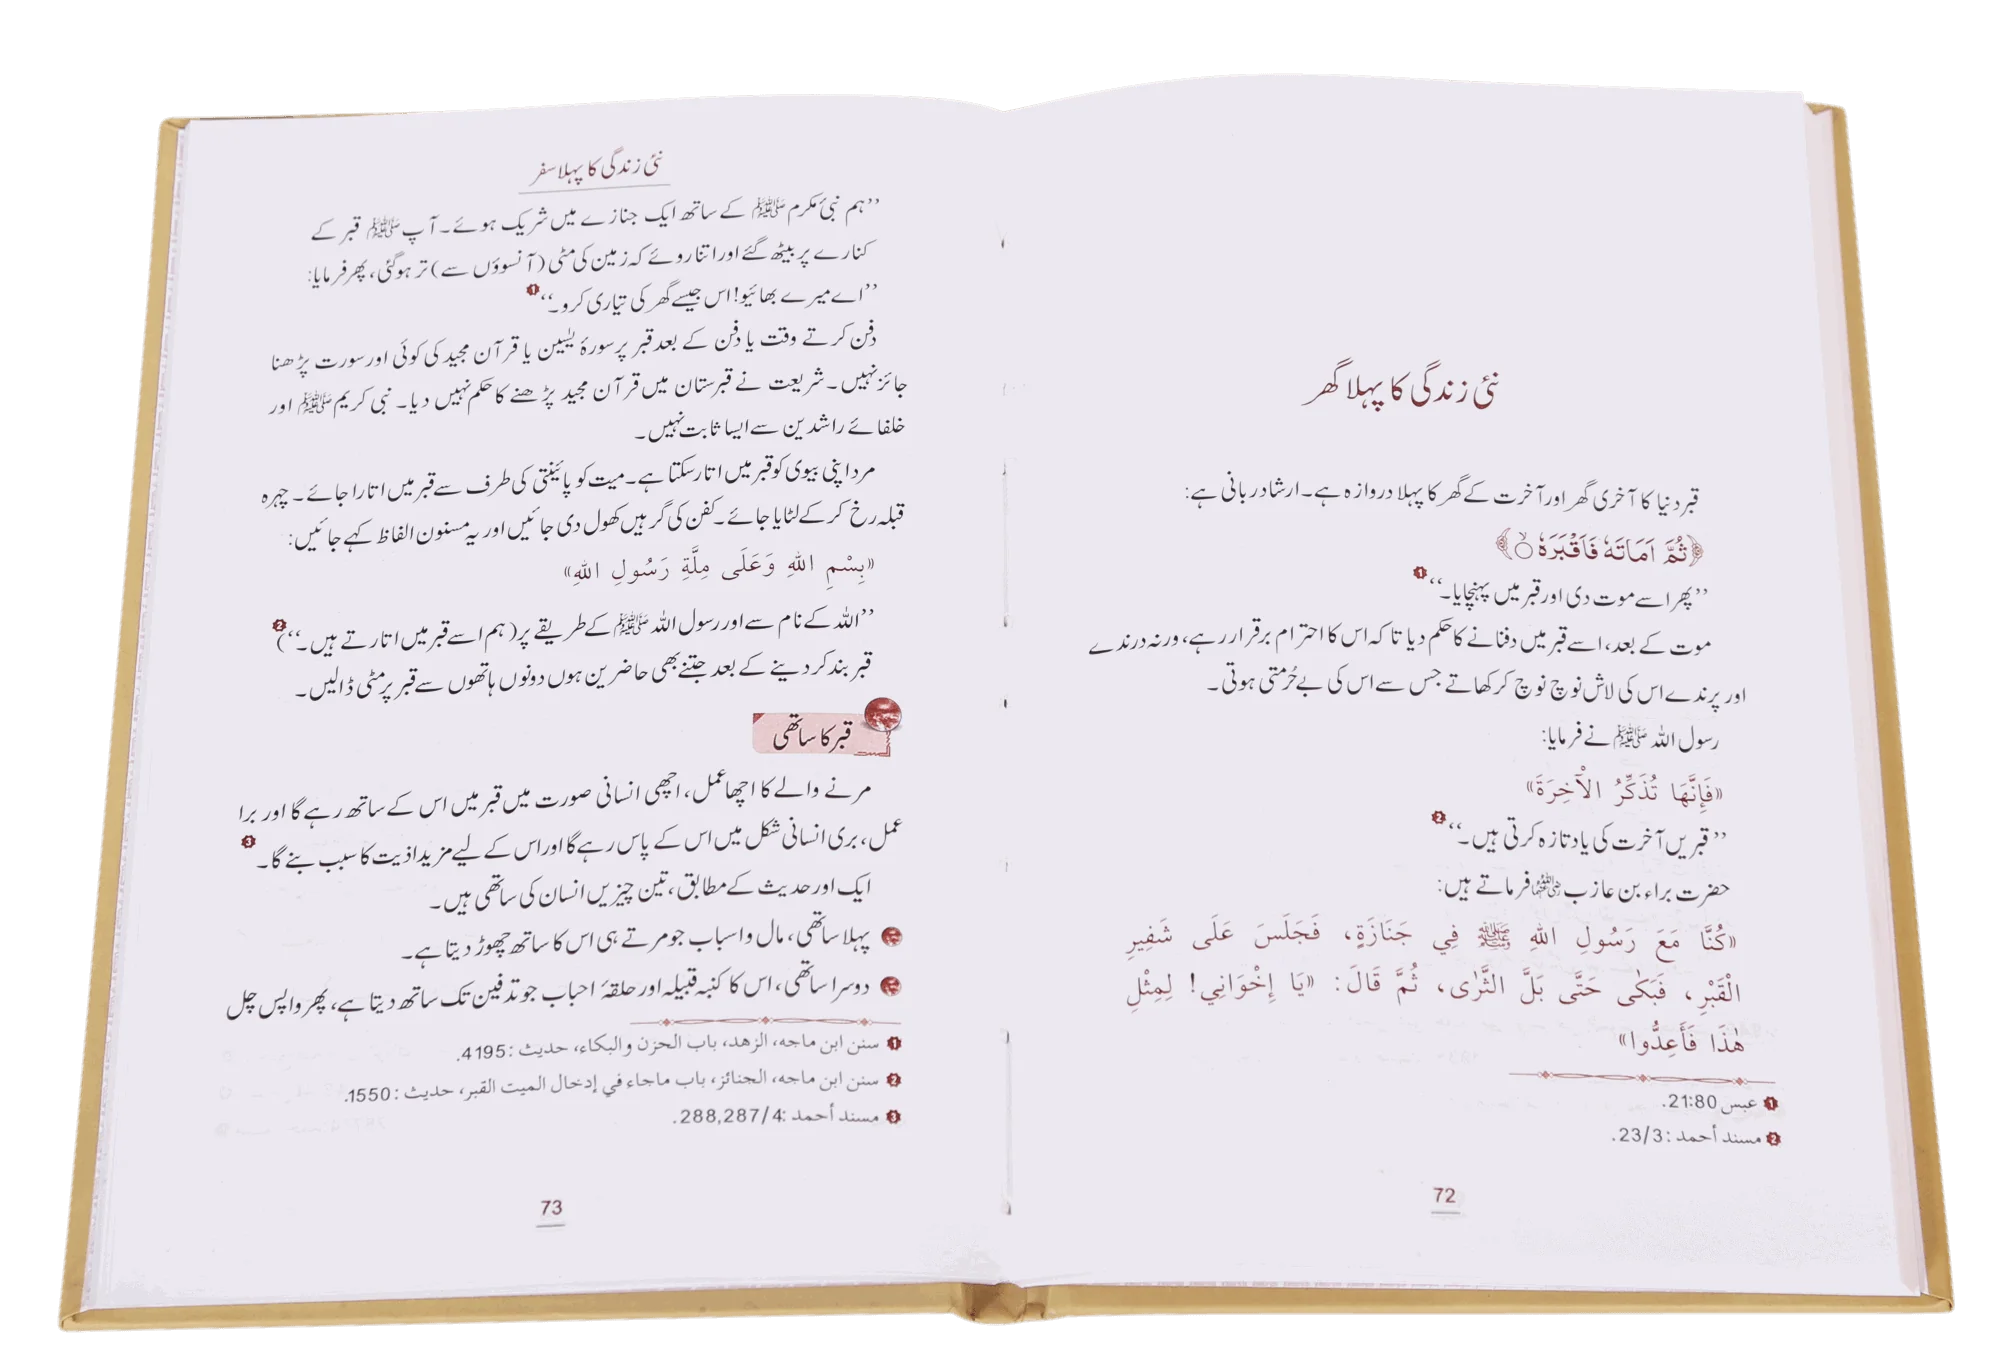 نئی زندگی کا پہلا گھر
قبر دنیا کا آخری گھر اور آخرت کے گھر کا پہلا دروازہ ہے۔ ارشاد ربانی ہے:
﴿ثُمَّ اَمَاتَهٗ فَاَقْبَرَهٗ ۝﴾
’’پھر اسے موت دی اور قبر میں پہنچایا۔‘‘ 1
موت کے بعد، اسے قبر میں دفنانے کا حکم دیا تاکہ اس کا احترام برقرار رہے، ورنہ درندے
اور پرندے اس کی لاش نوچ نوچ کر کھاتے جس سے اس کی بے حُرمتی ہوتی۔
رسول اللہ ﷺ نے فرمایا:
«فَإِنَّهَا تُذَكِّرُ الْآخِرَةَ»
’’قبریں آخرت کی یاد تازہ کرتی ہیں۔‘‘ 2
حضرت براء بن عازب رضی اللہ عنہما فرماتے ہیں:
«كُنَّا مَعَ رَسُولِ اللهِ ﷺ فِي جَنَازَةٍ، فَجَلَسَ عَلَى شَفِيرِ
الْقَبْرِ، فَبَكٰى حَتَّى بَلَّ الثَّرٰى، ثُمَّ قَالَ: «يَا إِخْوَانِي! لِمِثْلِ
هٰذَا فَأَعِدُّوا»
1 عبس 21:80.
2 مسند أحمد: 23/3.
72
نئی زندگی کا پہلا سفر
’’ہم نبیٔ مکرم ﷺ کے ساتھ ایک جنازے میں شریک ہوئے۔ آپ ﷺ قبر کے
کنارے پر بیٹھ گئے اور اتنا روئے کہ زمین کی مٹی (آنسوؤں سے) تر ہوگئی، پھر فرمایا:
’’اے میرے بھائیو! اس جیسے گھر کی تیاری کرو۔‘‘ 1
دفن کرتے وقت یا دفن کے بعد قبر پر سورۂ یٰسین یا قرآن مجید کی کوئی اور سورت پڑھنا
جائز نہیں۔ شریعت نے قبرستان میں قرآن مجید پڑھنے کا حکم نہیں دیا۔ نبی کریم ﷺ اور
خلفائے راشدین سے ایسا ثابت نہیں۔
مرد اپنی بیوی کو قبر میں اتار سکتا ہے۔ میت کو پائینتی کی طرف سے قبر میں اتارا جائے۔ چہرہ
قبلہ رخ کرکے لٹایا جائے۔ کفن کی گرہیں کھول دی جائیں اور یہ مسنون الفاظ کہے جائیں:
«بِسْمِ اللهِ وَعَلَى مِلَّةِ رَسُولِ اللهِ»
’’اللہ کے نام سے اور رسول اللہ ﷺ کے طریقے پر (ہم اسے قبر میں اتارتے ہیں۔‘‘) 2
قبر بند کر دینے کے بعد جتنے بھی حاضرین ہوں دونوں ہاتھوں سے قبر پر مٹی ڈالیں۔
قبر کا ساتھی
مرنے والے کا اچھا عمل، اچھی انسانی صورت میں قبر میں اس کے ساتھ رہے گا اور برا
عمل، بری انسانی شکل میں اس کے پاس رہے گا اور اس کے لیے مزید اذیت کا سبب بنے گا۔ 3
ایک اور حدیث کے مطابق، تین چیزیں انسان کی ساتھی ہیں۔
پہلا ساتھی، مال و اسباب جو مرتے ہی اس کا ساتھ چھوڑ دیتا ہے۔
دوسرا ساتھی، اس کا کنبہ قبیلہ اور حلقۂ احباب جو تدفین تک ساتھ دیتا ہے، پھر واپس چل
1 سنن ابن ماجه، الزهد، باب الحزن والبكاء، حديث: 4195.
2 سنن ابن ماجه، الجنائز، باب ماجاء في إدخال الميت القبر، حديث: 1550.
3 مسند أحمد: 288,287/4.
73